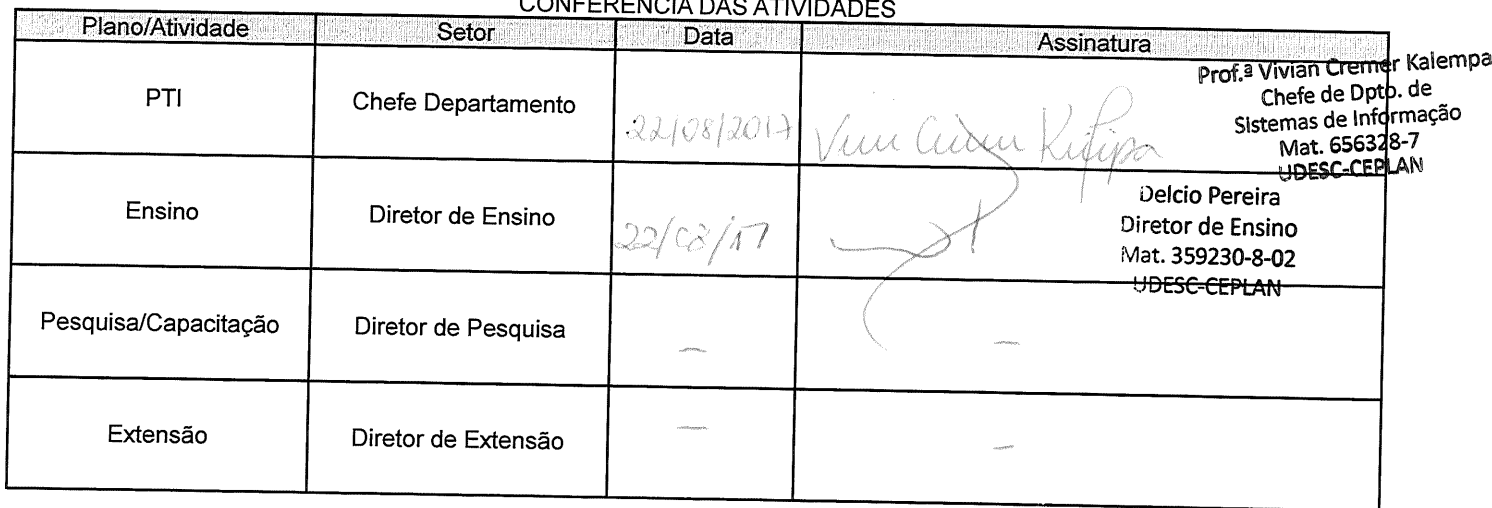 CONFERÊNCIA DAS ATIVIDADES
Plano/Atividade Setor Data Assinatura
PTI Chefe Departamento 22/08/2017
Prof.ª Vivian Cremer Kalempa
Chefe de Dpto. de
Sistemas de Informação
Mat. 656328-7
UDESC-CEPLAN
Ensino Diretor de Ensino 22/08/17
Delcio Pereira
Diretor de Ensino
Mat. 359230-8-02
UDESC-CEPLAN
Pesquisa/Capacitação Diretor de Pesquisa — —
Extensão Diretor de Extensão — —